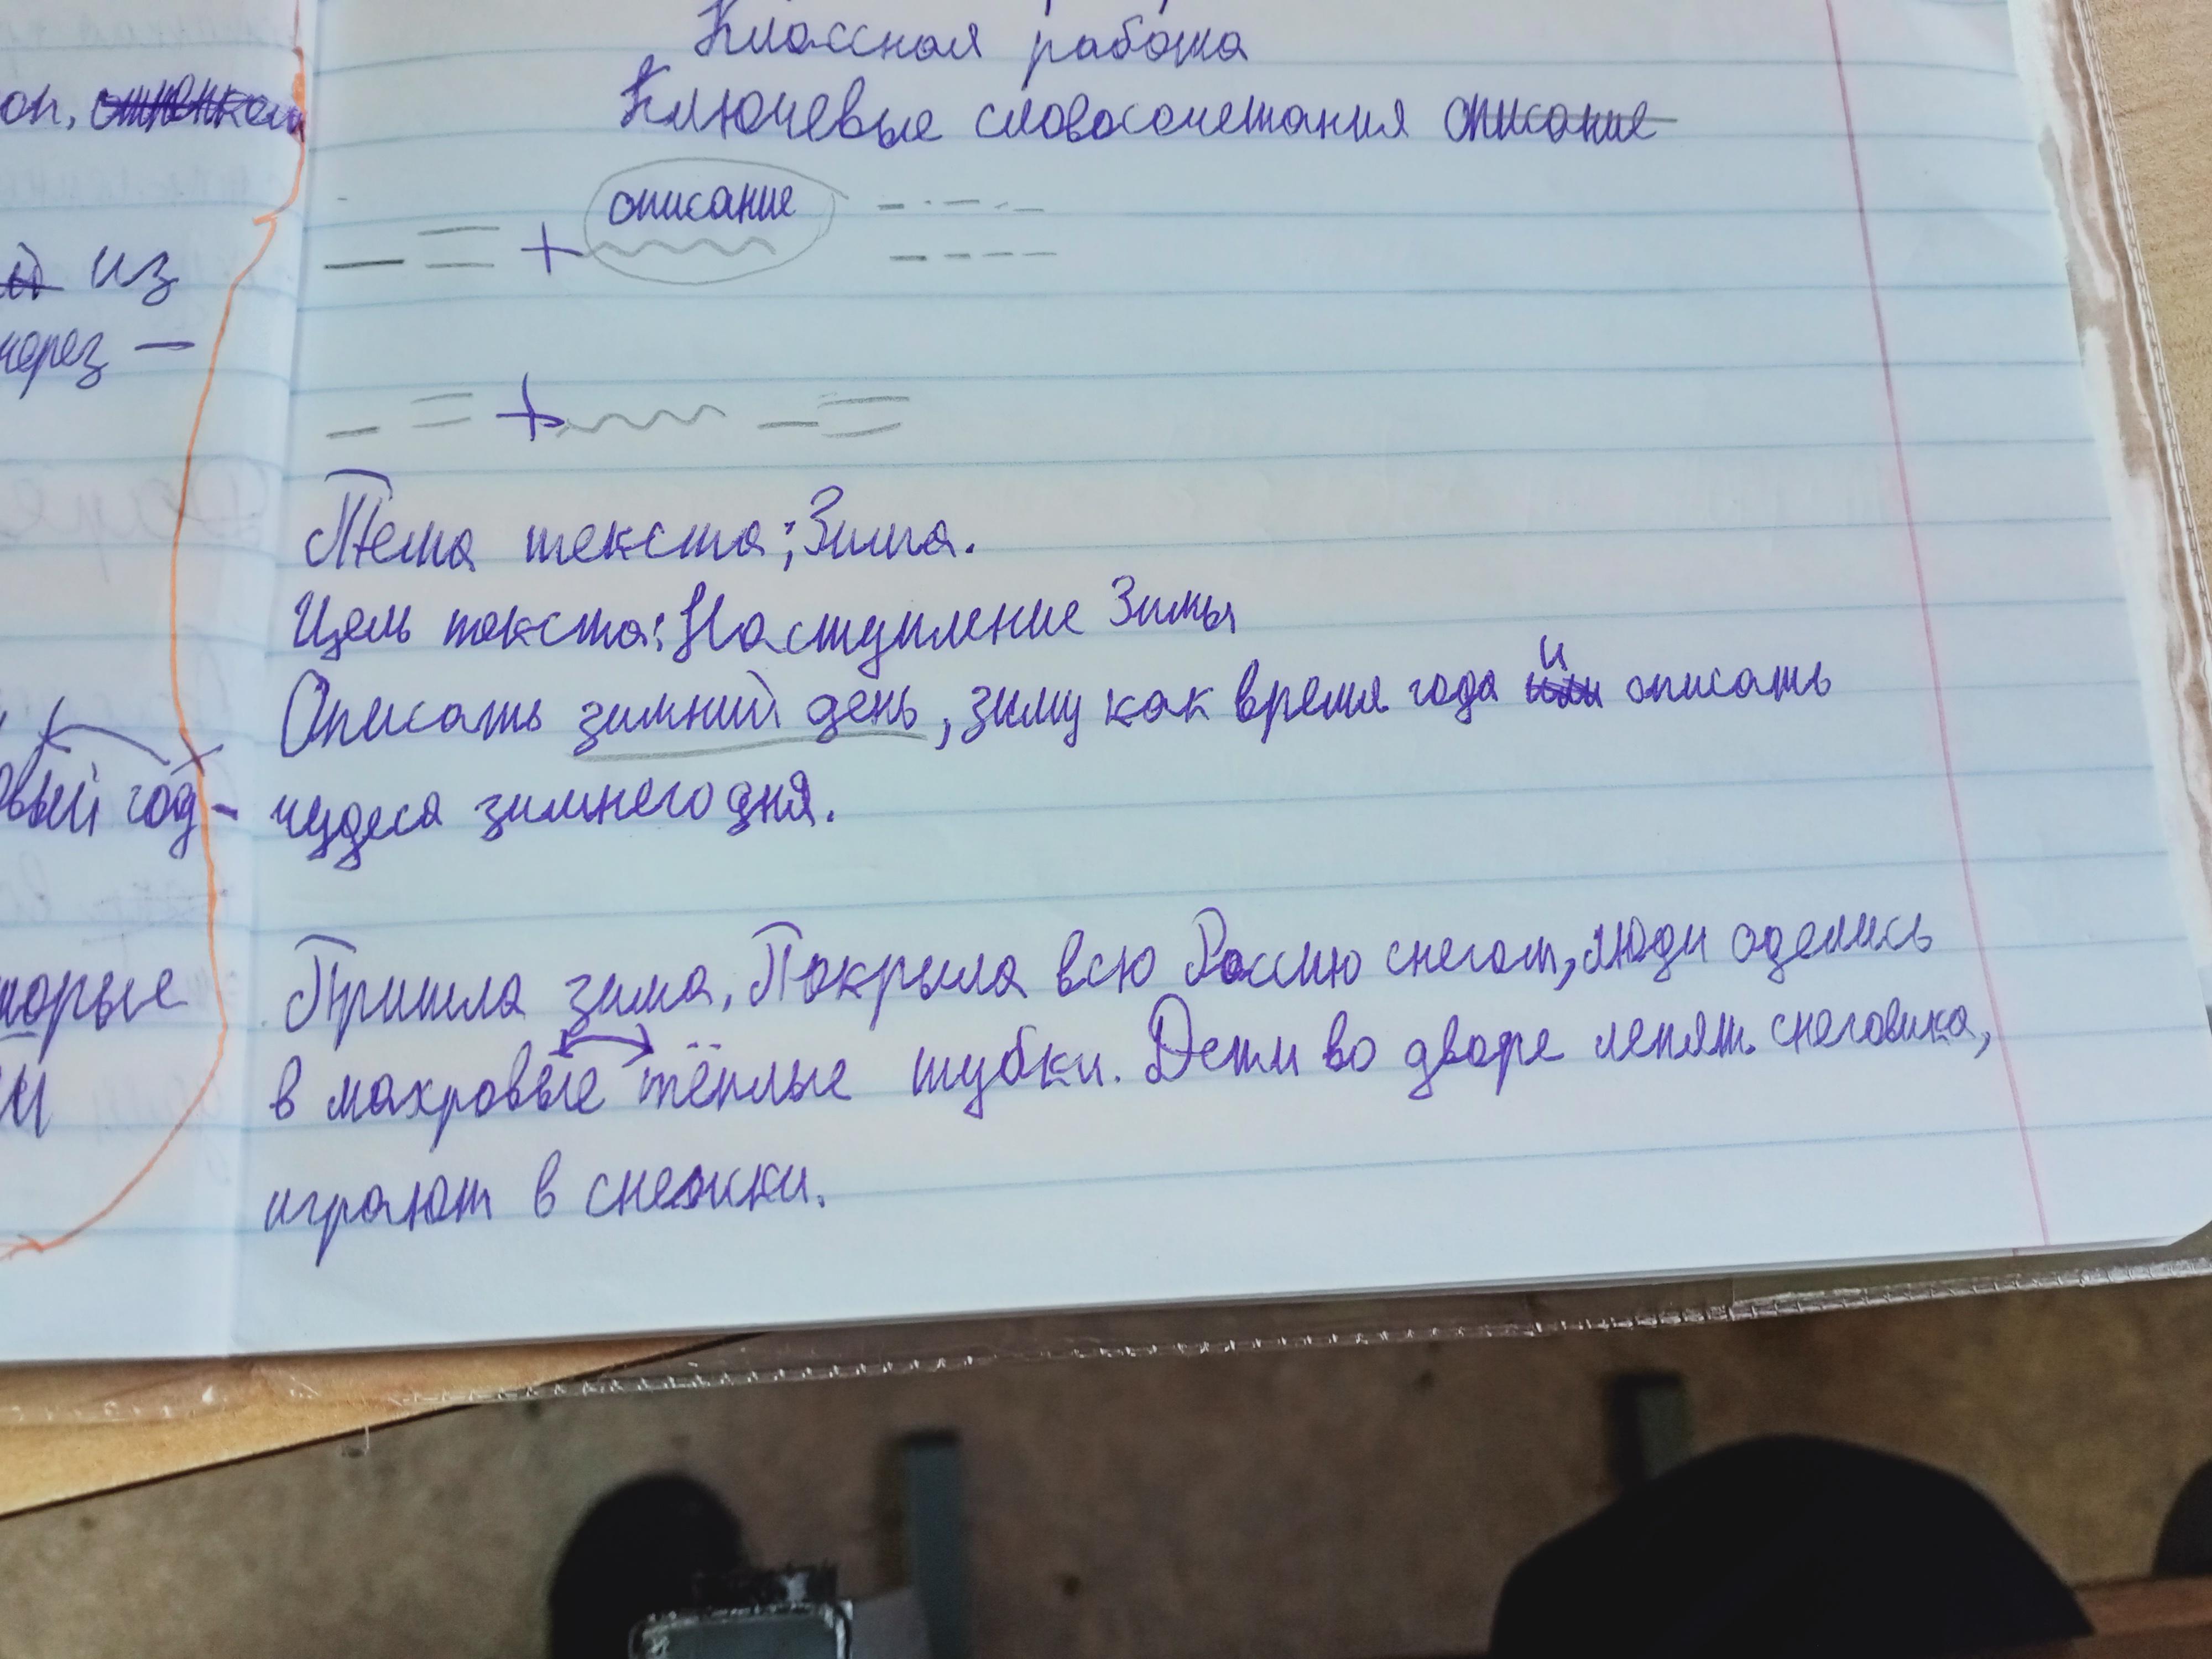 из
через –
Классная работа
Ключевые словосочетания описание
описание
Тема текста: Зима.
Цель текста: Наступление Зимы
Описать зимний день, зиму как время года и описать
год - чудеса зимнего дня.
Пришла зима, Покрыла всю Россию снегом, люди оделись
в махровые тёплые шубки. Дети во дворе лепят снеговика,
играют в снежки.